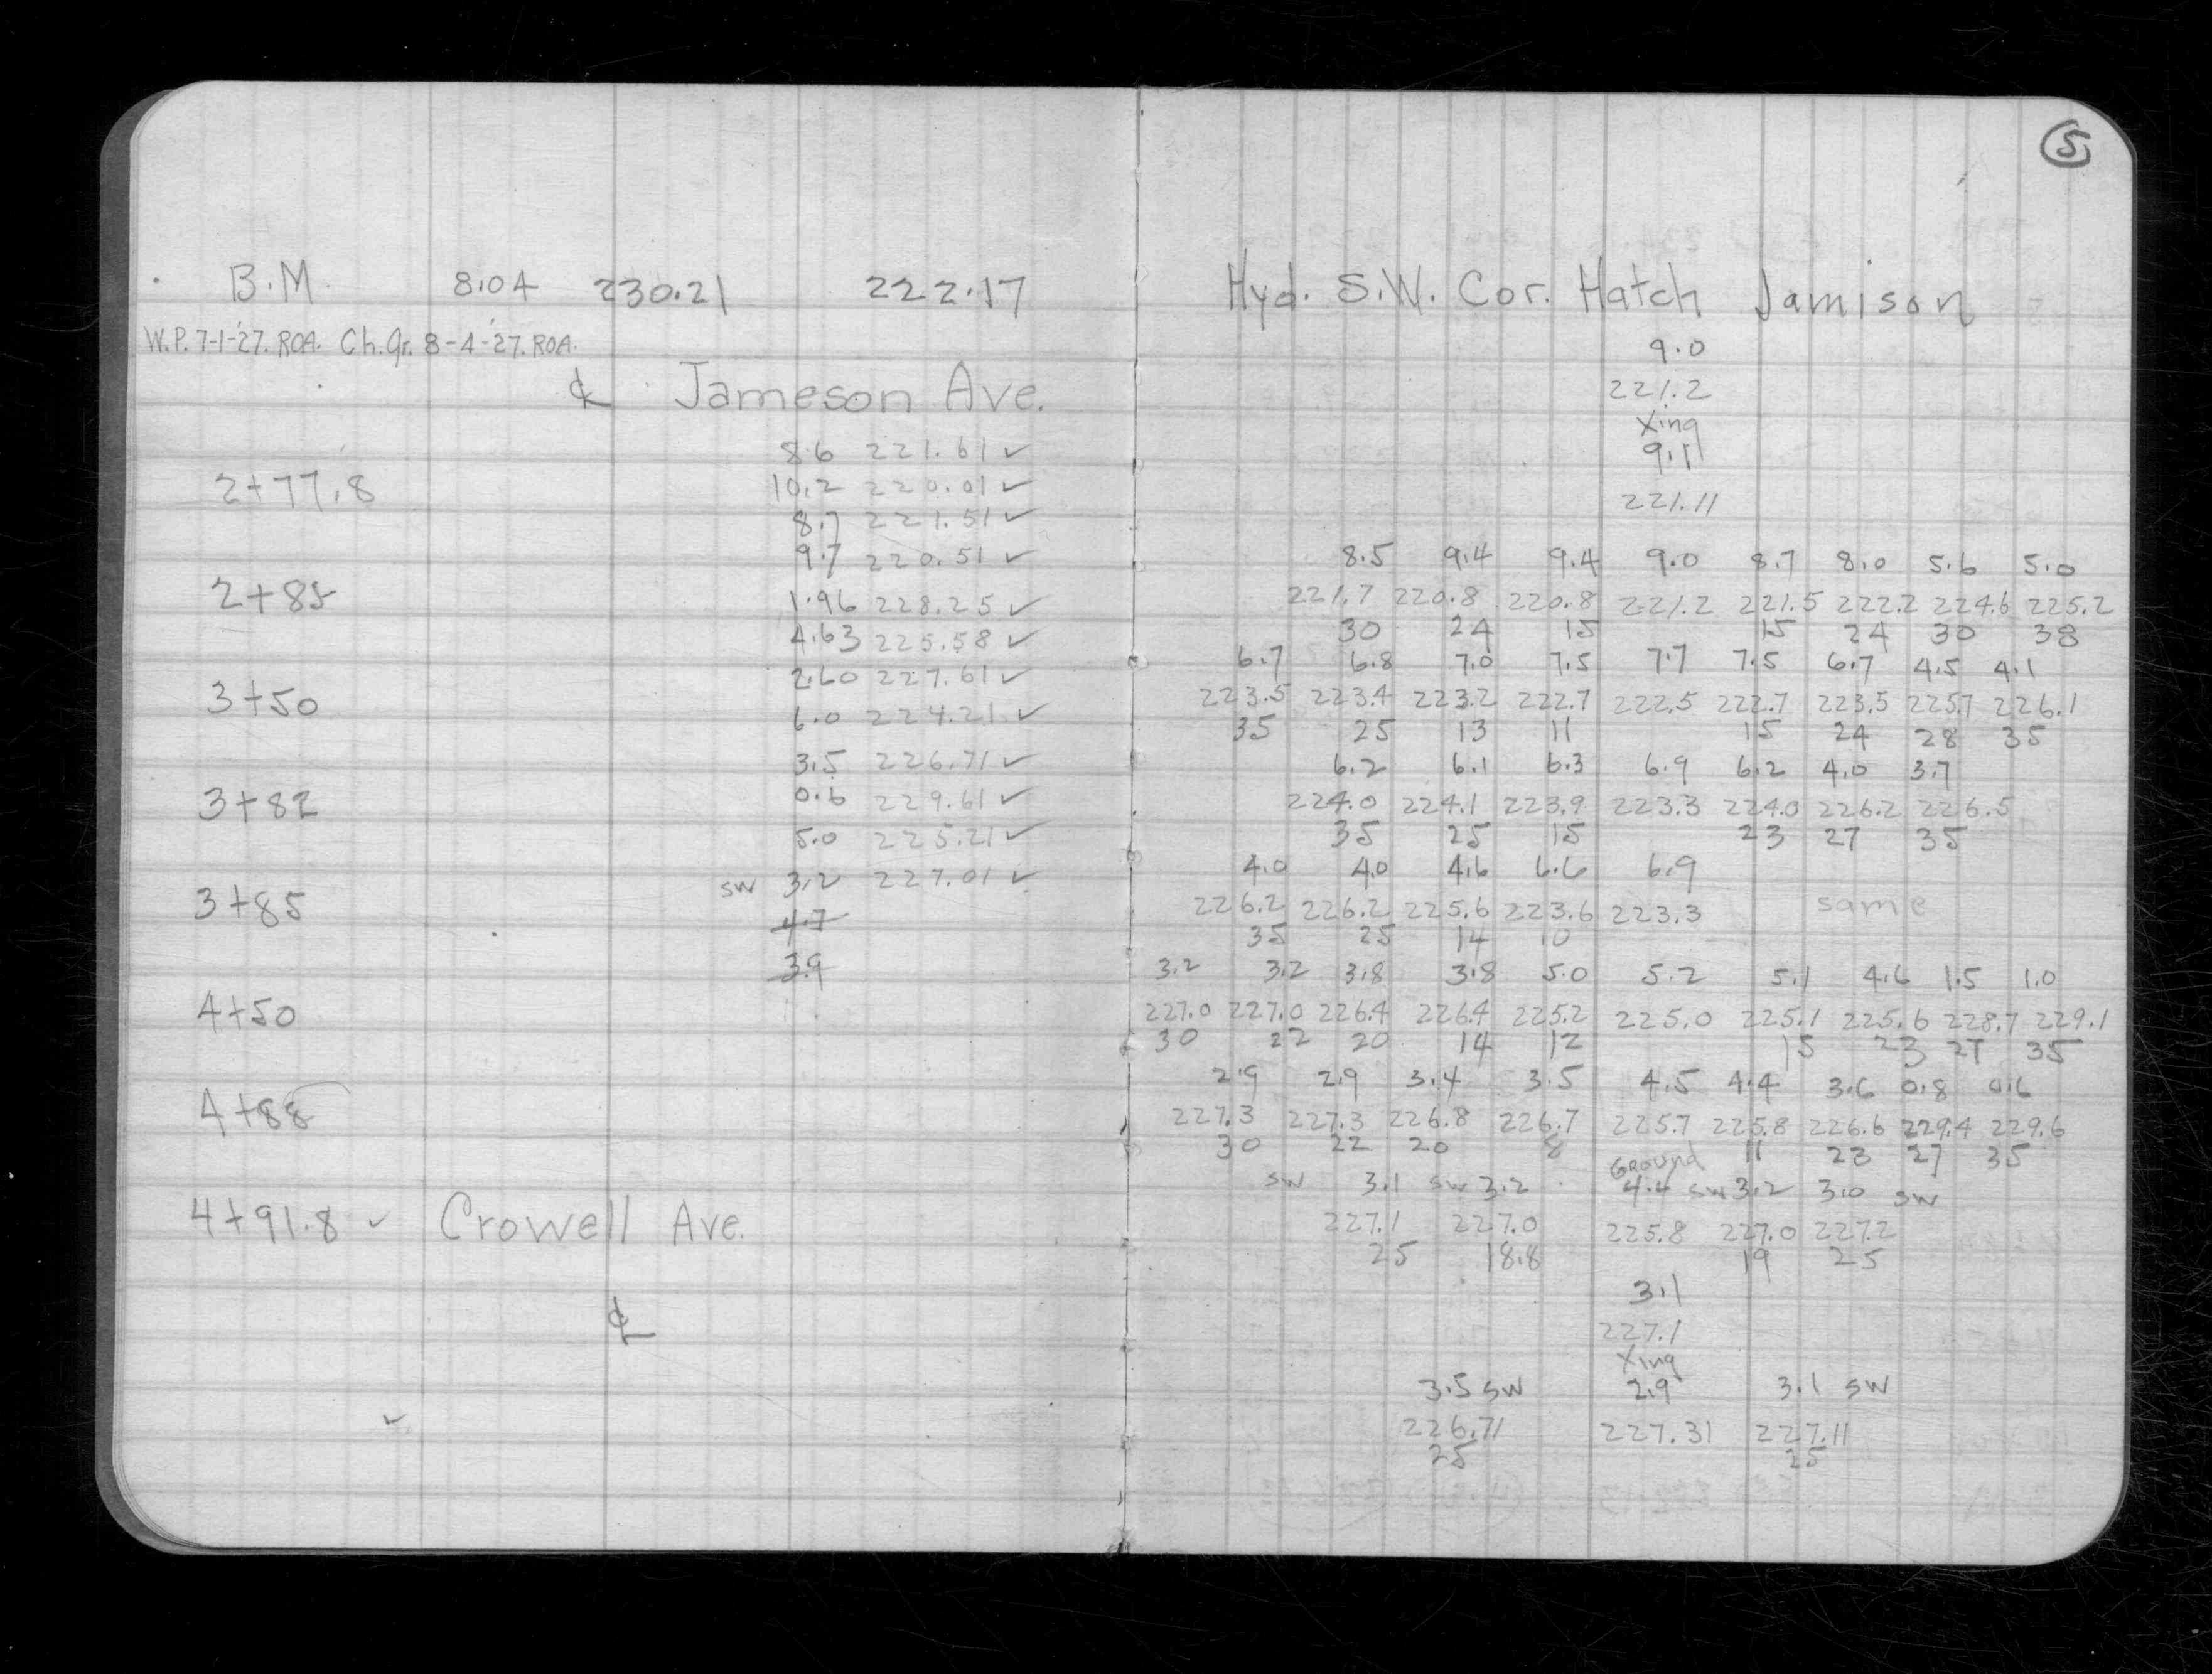 5
B.M. 8.04 230.21 222.17 Hyd. S.W. Cor. Hatch Jamison
W.P. 7-1-'27. ROA. Ch.Gr. 8-4-'27. ROA.
9.0
℄ Jameson Ave. 221.2
Xing
8.6 221.61 ✓ 9.11
2+77.8 10.2 220.01 ✓ 221.11
8.7 221.51 ✓
9.7 220.51 ✓ 8.5 9.4 9.4 9.0 8.7 8.0 5.6 5.0
2+85 1.96 228.25 ✓ 221.7 220.8 220.8 221.2 221.5 222.2 224.6 225.2
4.63 225.58 ✓ 30 24 15 15 24 30 38
2.60 227.61 ✓ 6.7 6.8 7.0 7.5 7.7 7.5 6.7 4.5 4.1
3+50 6.0 224.21 ✓ 223.5 223.4 223.2 222.7 222.5 222.7 223.5 225.7 226.1
35 25 13 11 15 24 28 35
3.5 226.71 ✓ 6.2 6.1 6.3 6.9 6.2 4.0 3.7
3+82 0.6 229.61 ✓ 224.0 224.1 223.9 223.3 224.0 226.2 226.5
5.0 225.21 ✓ 35 25 15 23 27 35
sw 3.2 227.01 ✓ 4.0 4.0 4.6 6.6 6.9
3+85 4.7 226.2 226.2 225.6 223.6 223.3 same
35 25 14 10
3.9 3.2 3.2 3.8 3.8 5.0 5.2 5.1 4.6 1.5 1.0
4+50 227.0 227.0 226.4 226.4 225.2 225.0 225.1 225.6 228.7 229.1
30 22 20 14 12 15 23 27 35
2.9 2.9 3.4 3.5 4.5 4.4 3.6 0.8 0.6
4+88 227.3 227.3 226.8 226.7 225.7 225.8 226.6 229.4 229.6
30 22 20 8 11 23 27 35
Ground
sw 3.1 sw 3.2 4.4 sw 3.2 3.0 sw
4+91.8 ✓ Crowell Ave. 227.1 227.0 225.8 227.0 227.2
25 18.8 19 25
3.1
℄ 227.1
Xing
3.5 sw 2.9 3.1 sw
✓ 226.71 227.31 227.11
25 25